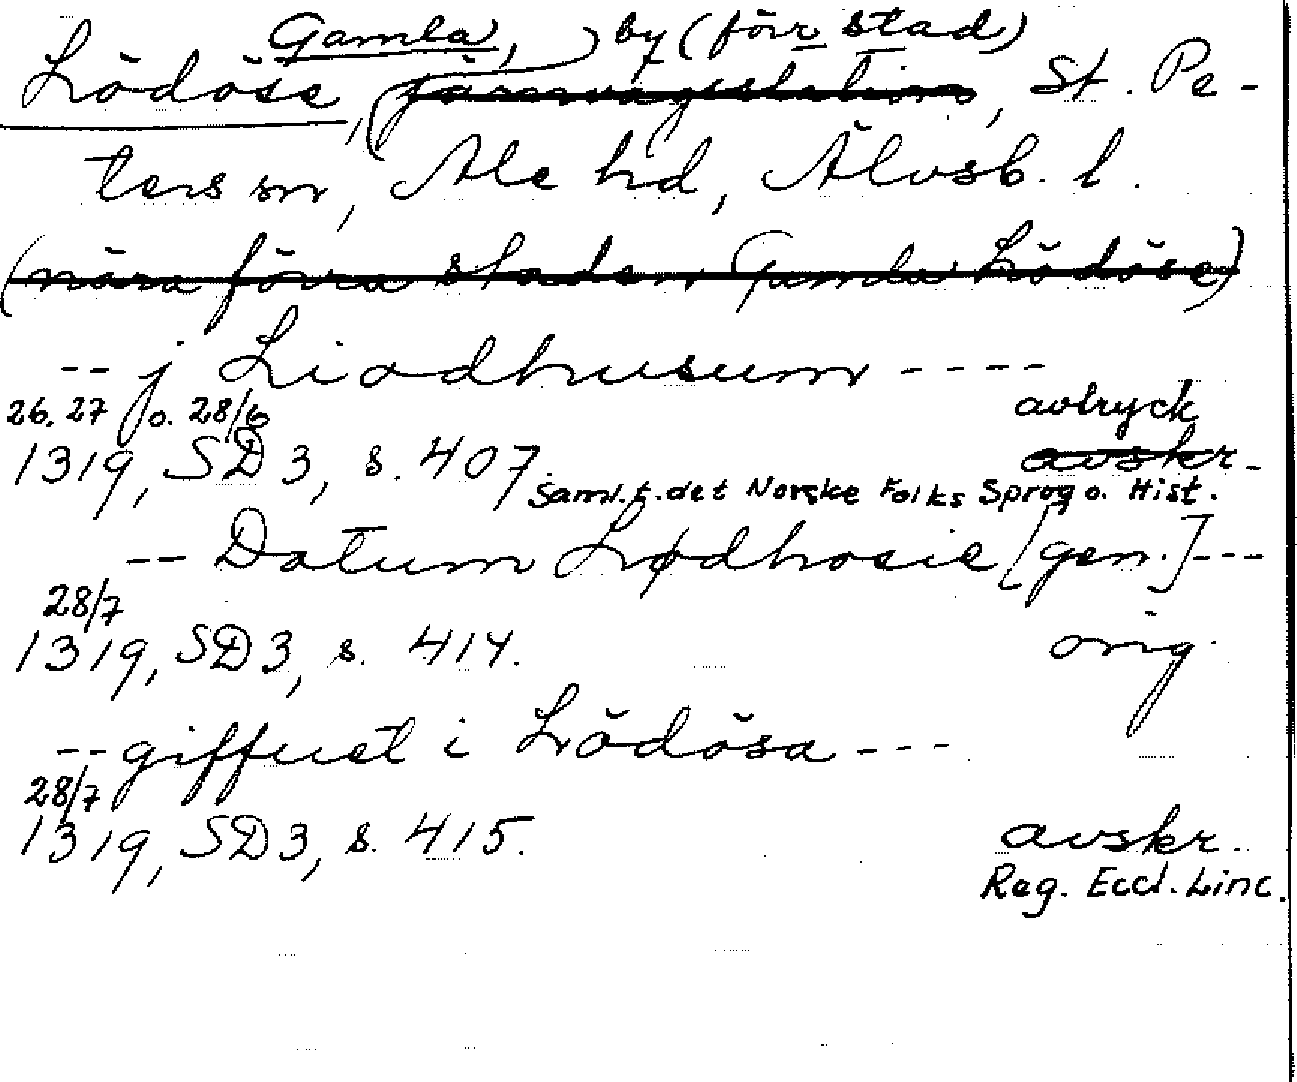 Gamla, by (förr stad)
Lödöse, (järnvägsstation), St. Pe-
ters sn, Ale hd, Älvsb. l.
(nära förra staden Gamla Lödöse)
-- j Liodhusum ----
26. 27 o. 28/6 avtryck
1319, SD 3, s. 407. avskr.
Saml. t. det Norske Folks Sprog o. Hist.
-- Datum Lødhosie [gen.] ---
28/7
1319, SD 3, s. 414. orig.
-- giffuet i Lödösa ---
28/7
1319, SD 3, s. 415. avskr.
Reg. Eccl. Linc.